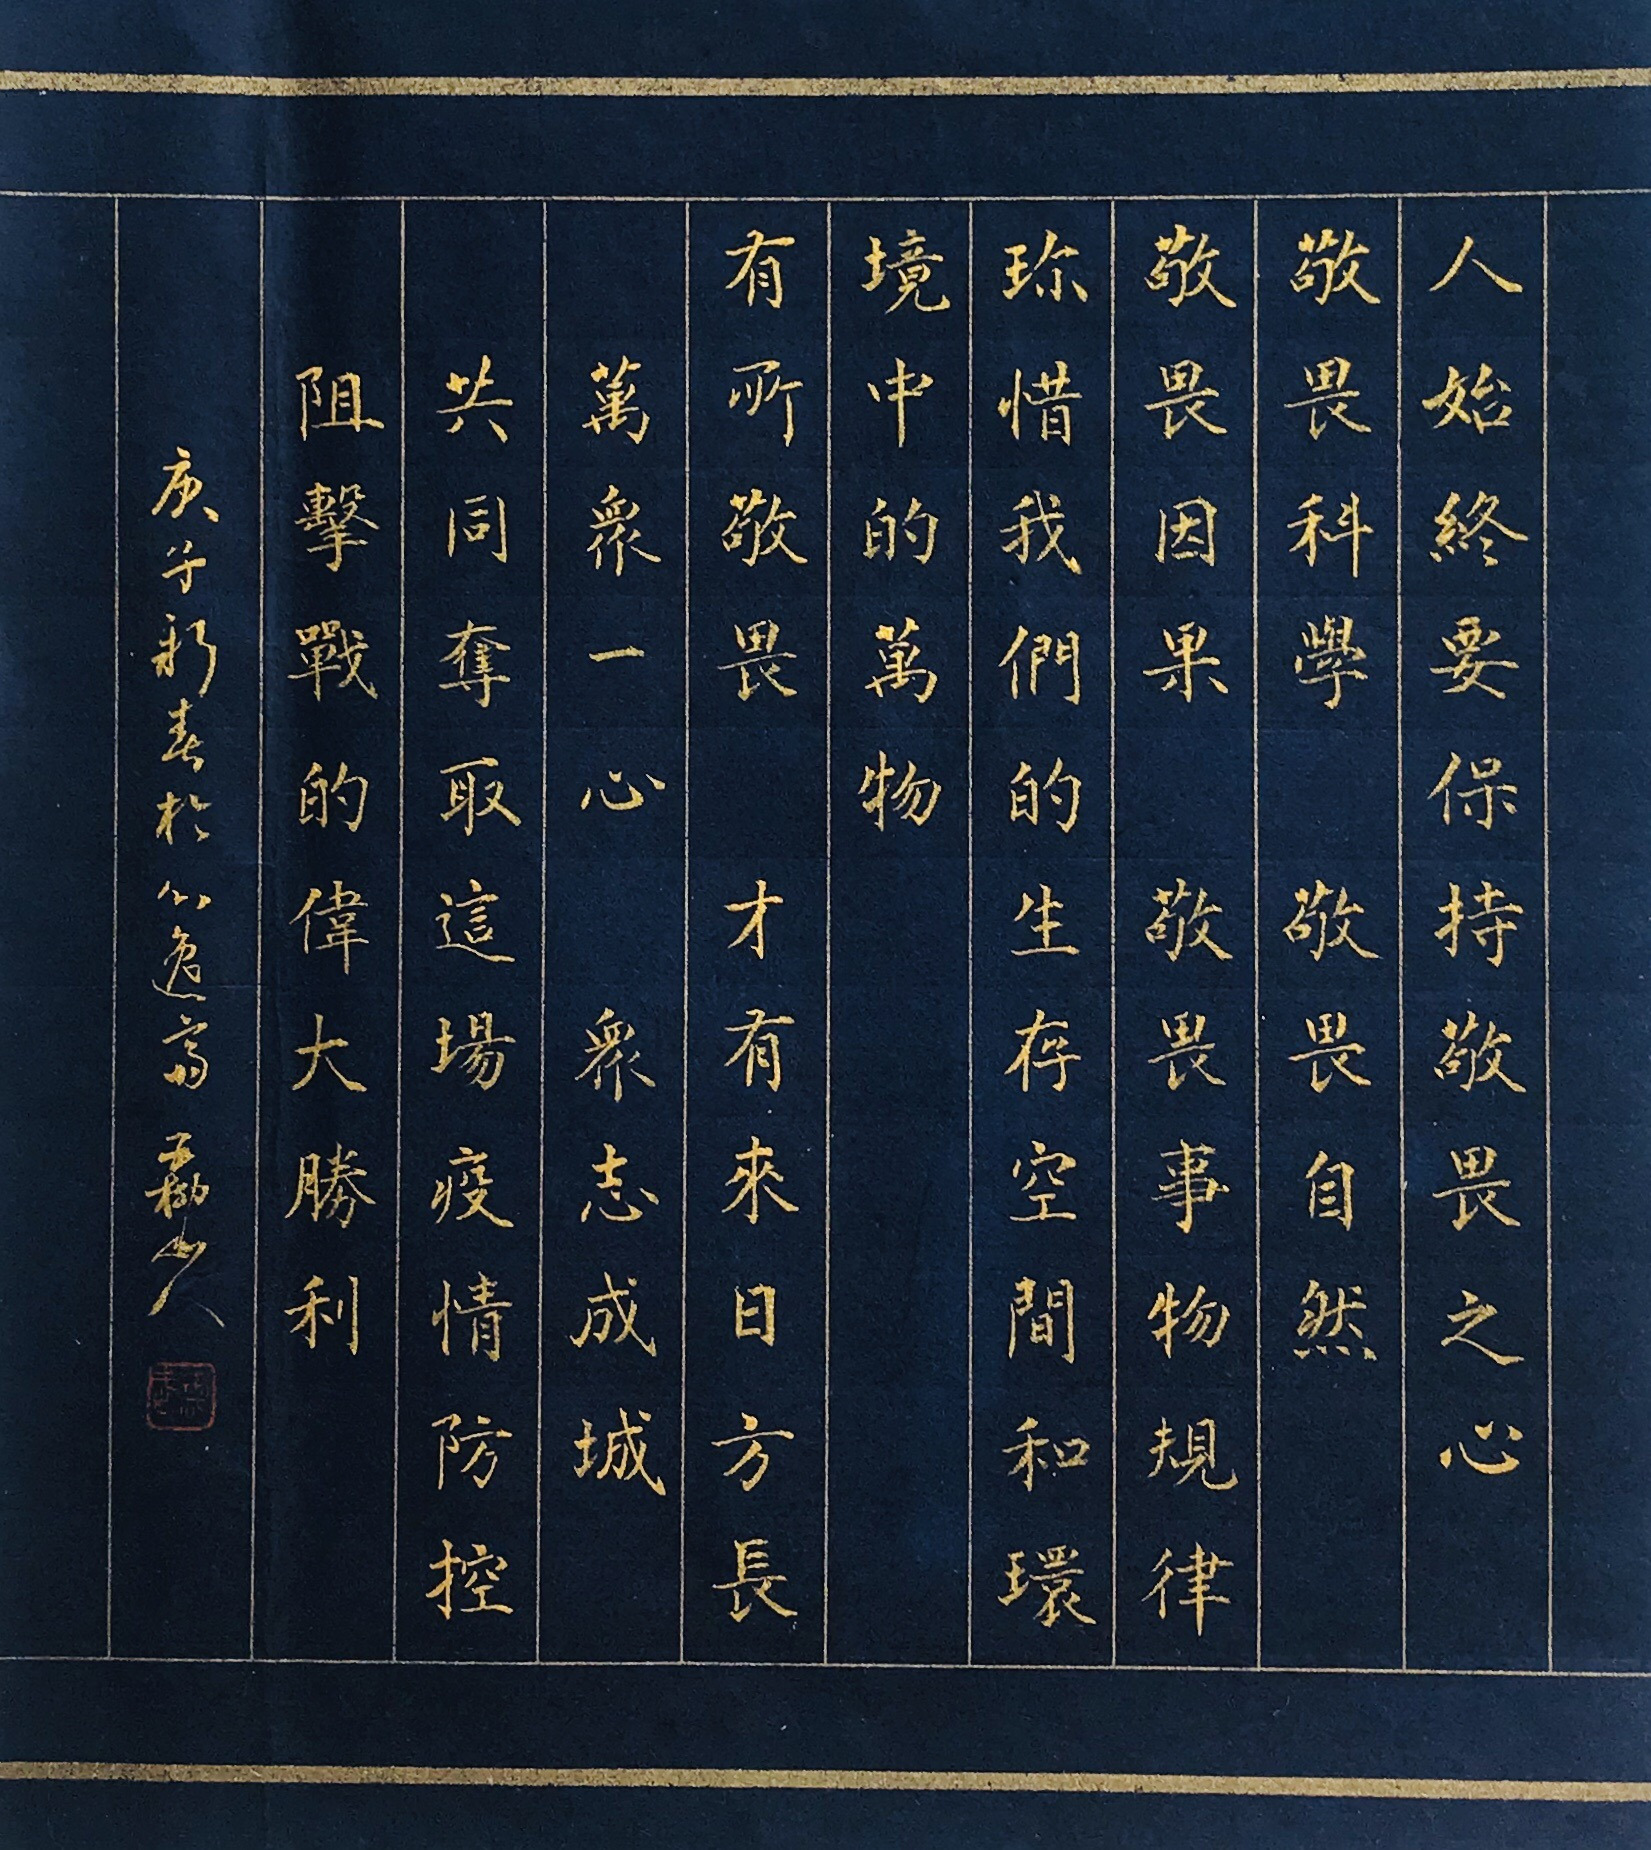 人始終要保持敬畏之心
敬畏科學 敬畏自然
敬畏因果 敬畏事物規律
珎惜我們的生存空間和環
境中的萬物
有所敬畏 才有來日方長
萬衆一心 衆志成城
共同奪取這場疫情防控
阻擊戰的偉大勝利
庚子新春於心逸齋